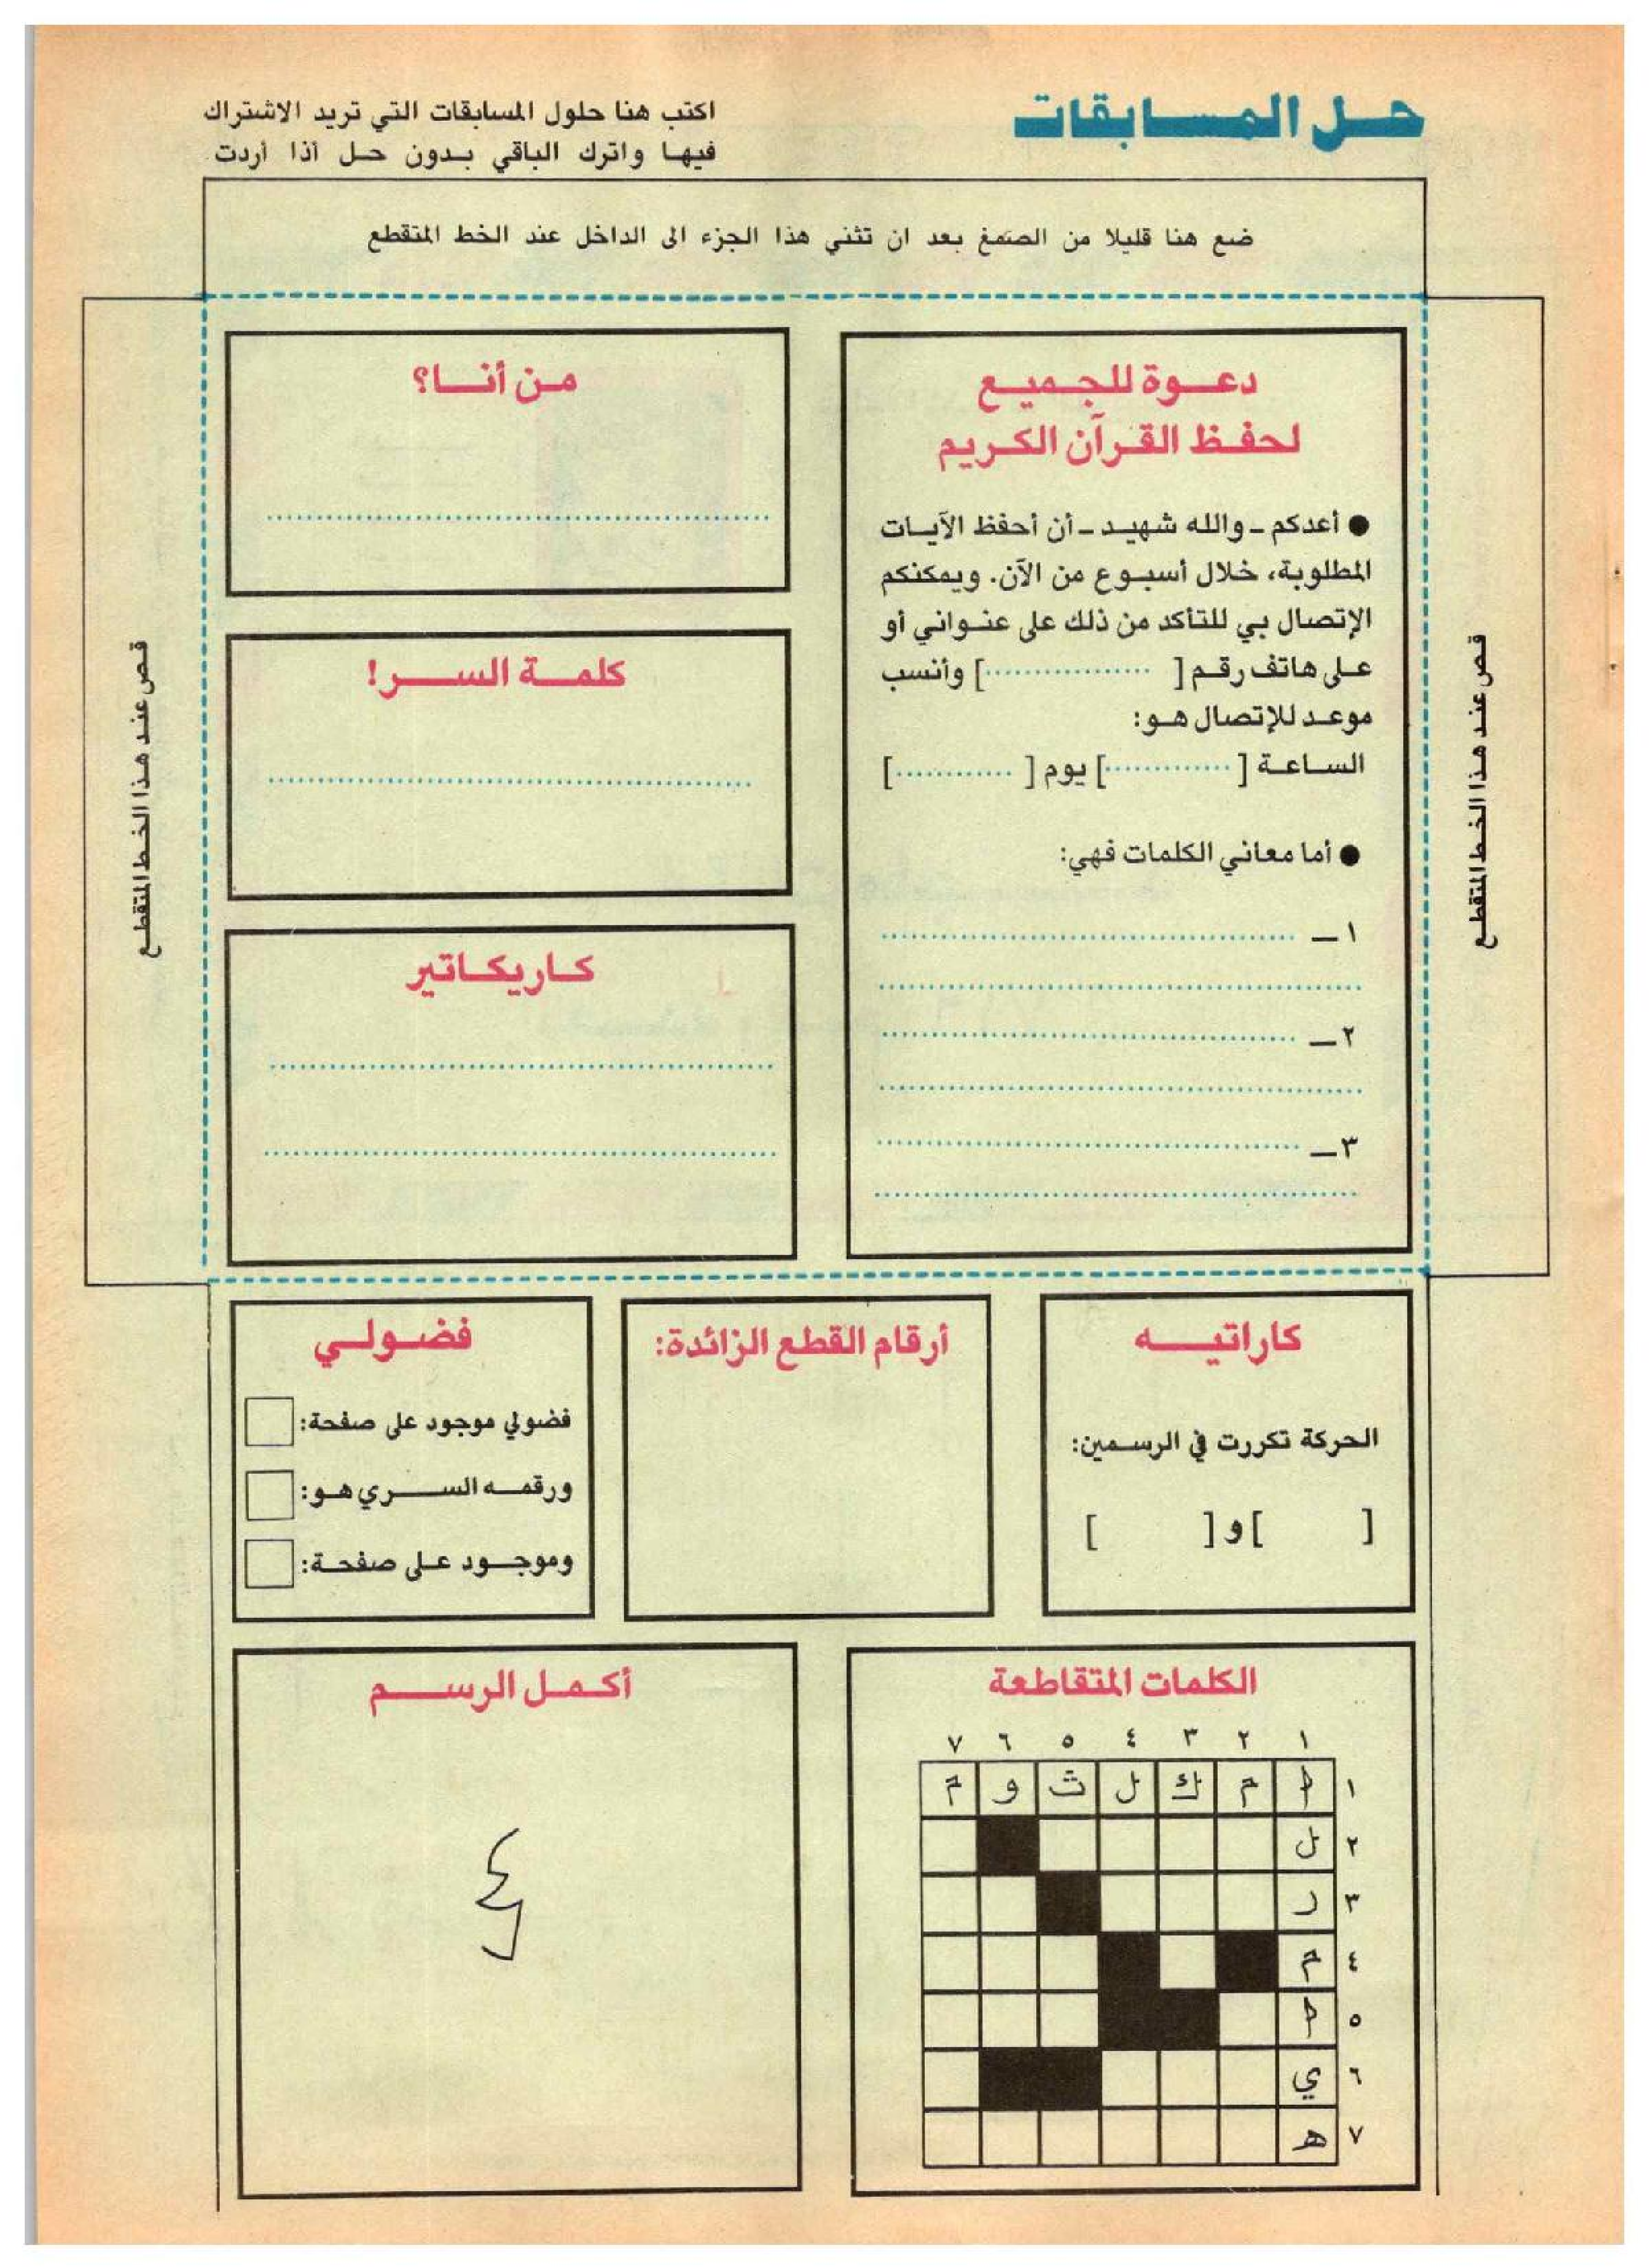 حل المسابقات
اكتب هنا حلول المسابقات التي تريد الاشتراك
فيها واترك الباقي بدون حل أذا أردت
ضع هنا قليلا من الصمغ بعد ان تثني هذا الجزء الى الداخل عند الخط المتقطع
قص عند هذا الخط المتقطع
دعوة للجميع
لحفظ القرآن الكريم
● أعدكم - والله شهيد - أن أحفظ الآيات
المطلوبة، خلال أسبوع من الآن. ويمكنكم
الإتصال بي للتأكد من ذلك على عنواني أو
على هاتف رقم [ ................ ] وأنسب
موعد للإتصال هو:
الساعة [ ............. ] يوم [ ............ ]
● أما معاني الكلمات فهي:
١ -
٢ -
٣ -
من أنا؟
كلمة السر!
كاريكاتير
قص عند هذا الخط المتقطع
كاراتيه
الحركة تكررت في الرسمين:
[ ] و [ ]
أرقام القطع الزائدة:
فضولي
فضولي موجود على صفحة:
ورقمه السري هو:
وموجود على صفحة:
الكلمات المتقاطعة
١ ٢ ٣ ٤ ٥ ٦ ٧
١ ا م ك ل ث و م
٢ ل
٣ ر
٤ م
٥ ا
٦ ي
٧ ه
أكمل الرسم